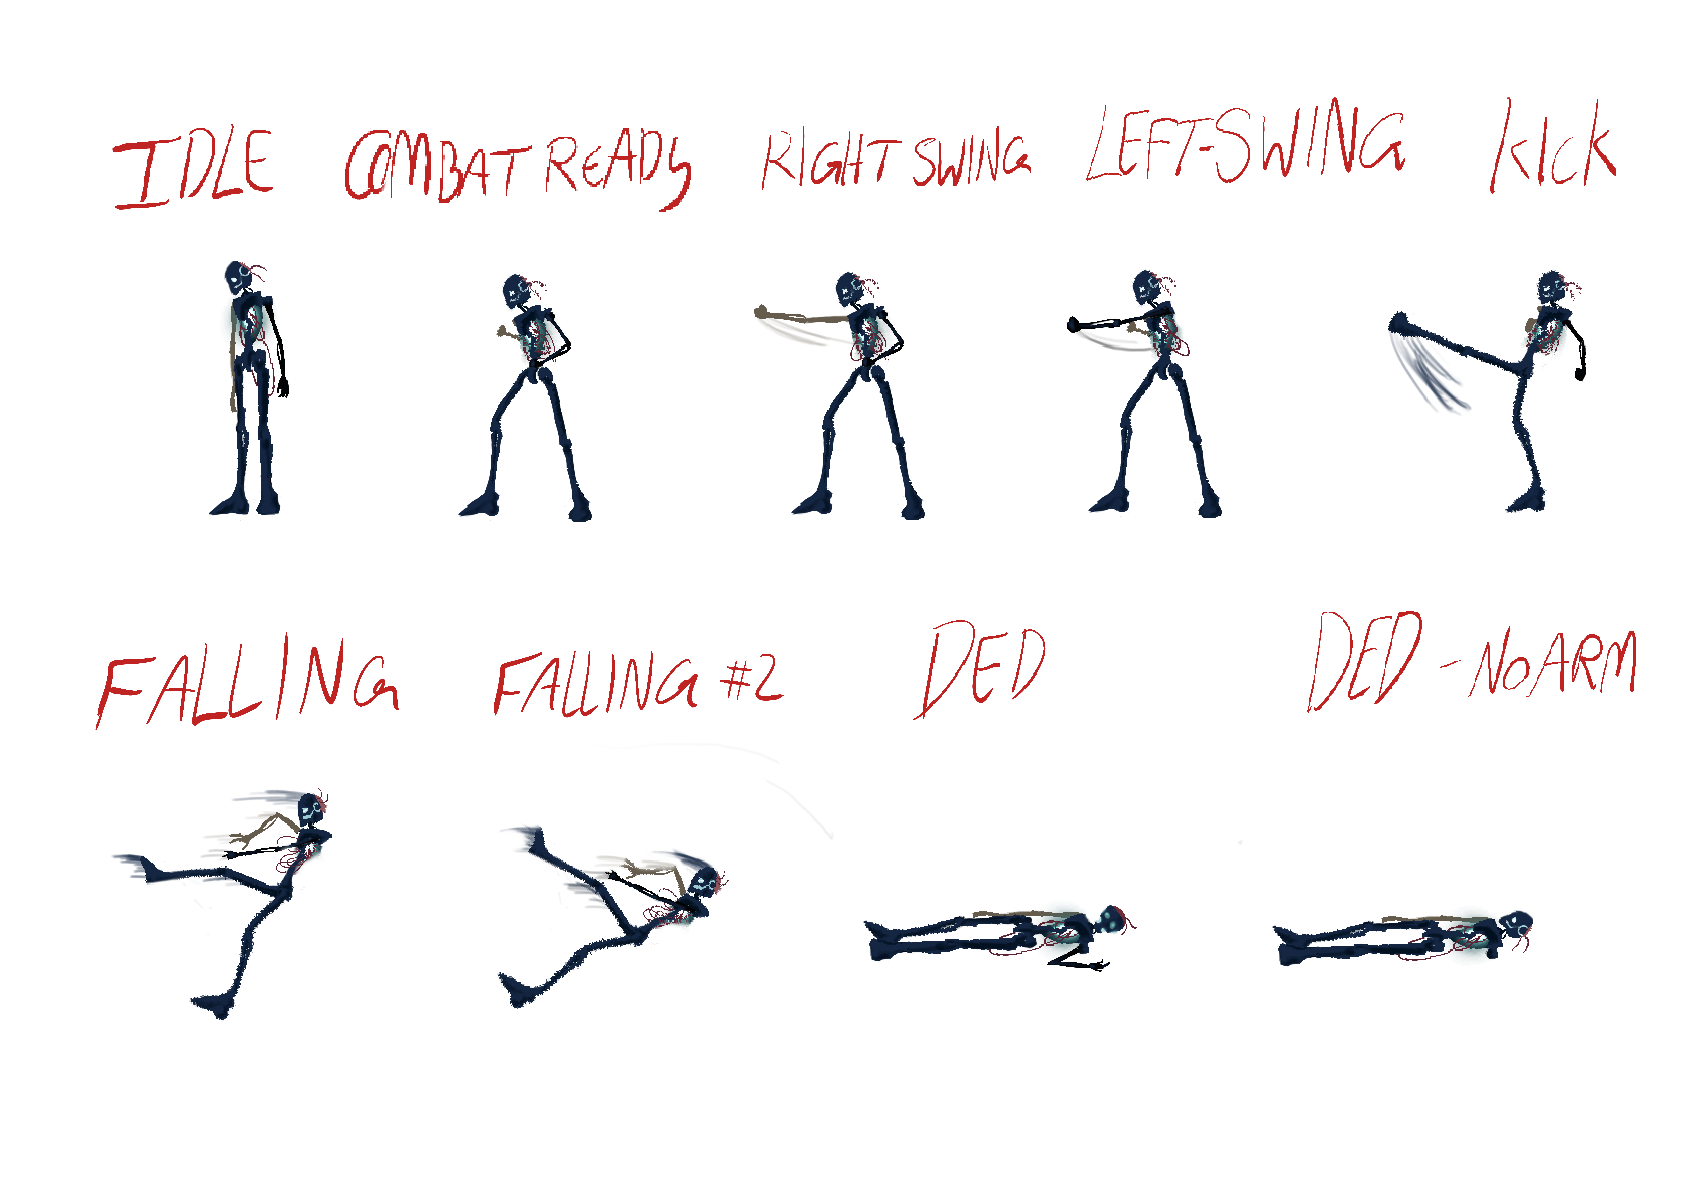 IDLE COMBAT READY RIGHT SWING LEFT-SWING KICK
FALLING FALLING #2 DED DED - NO ARM